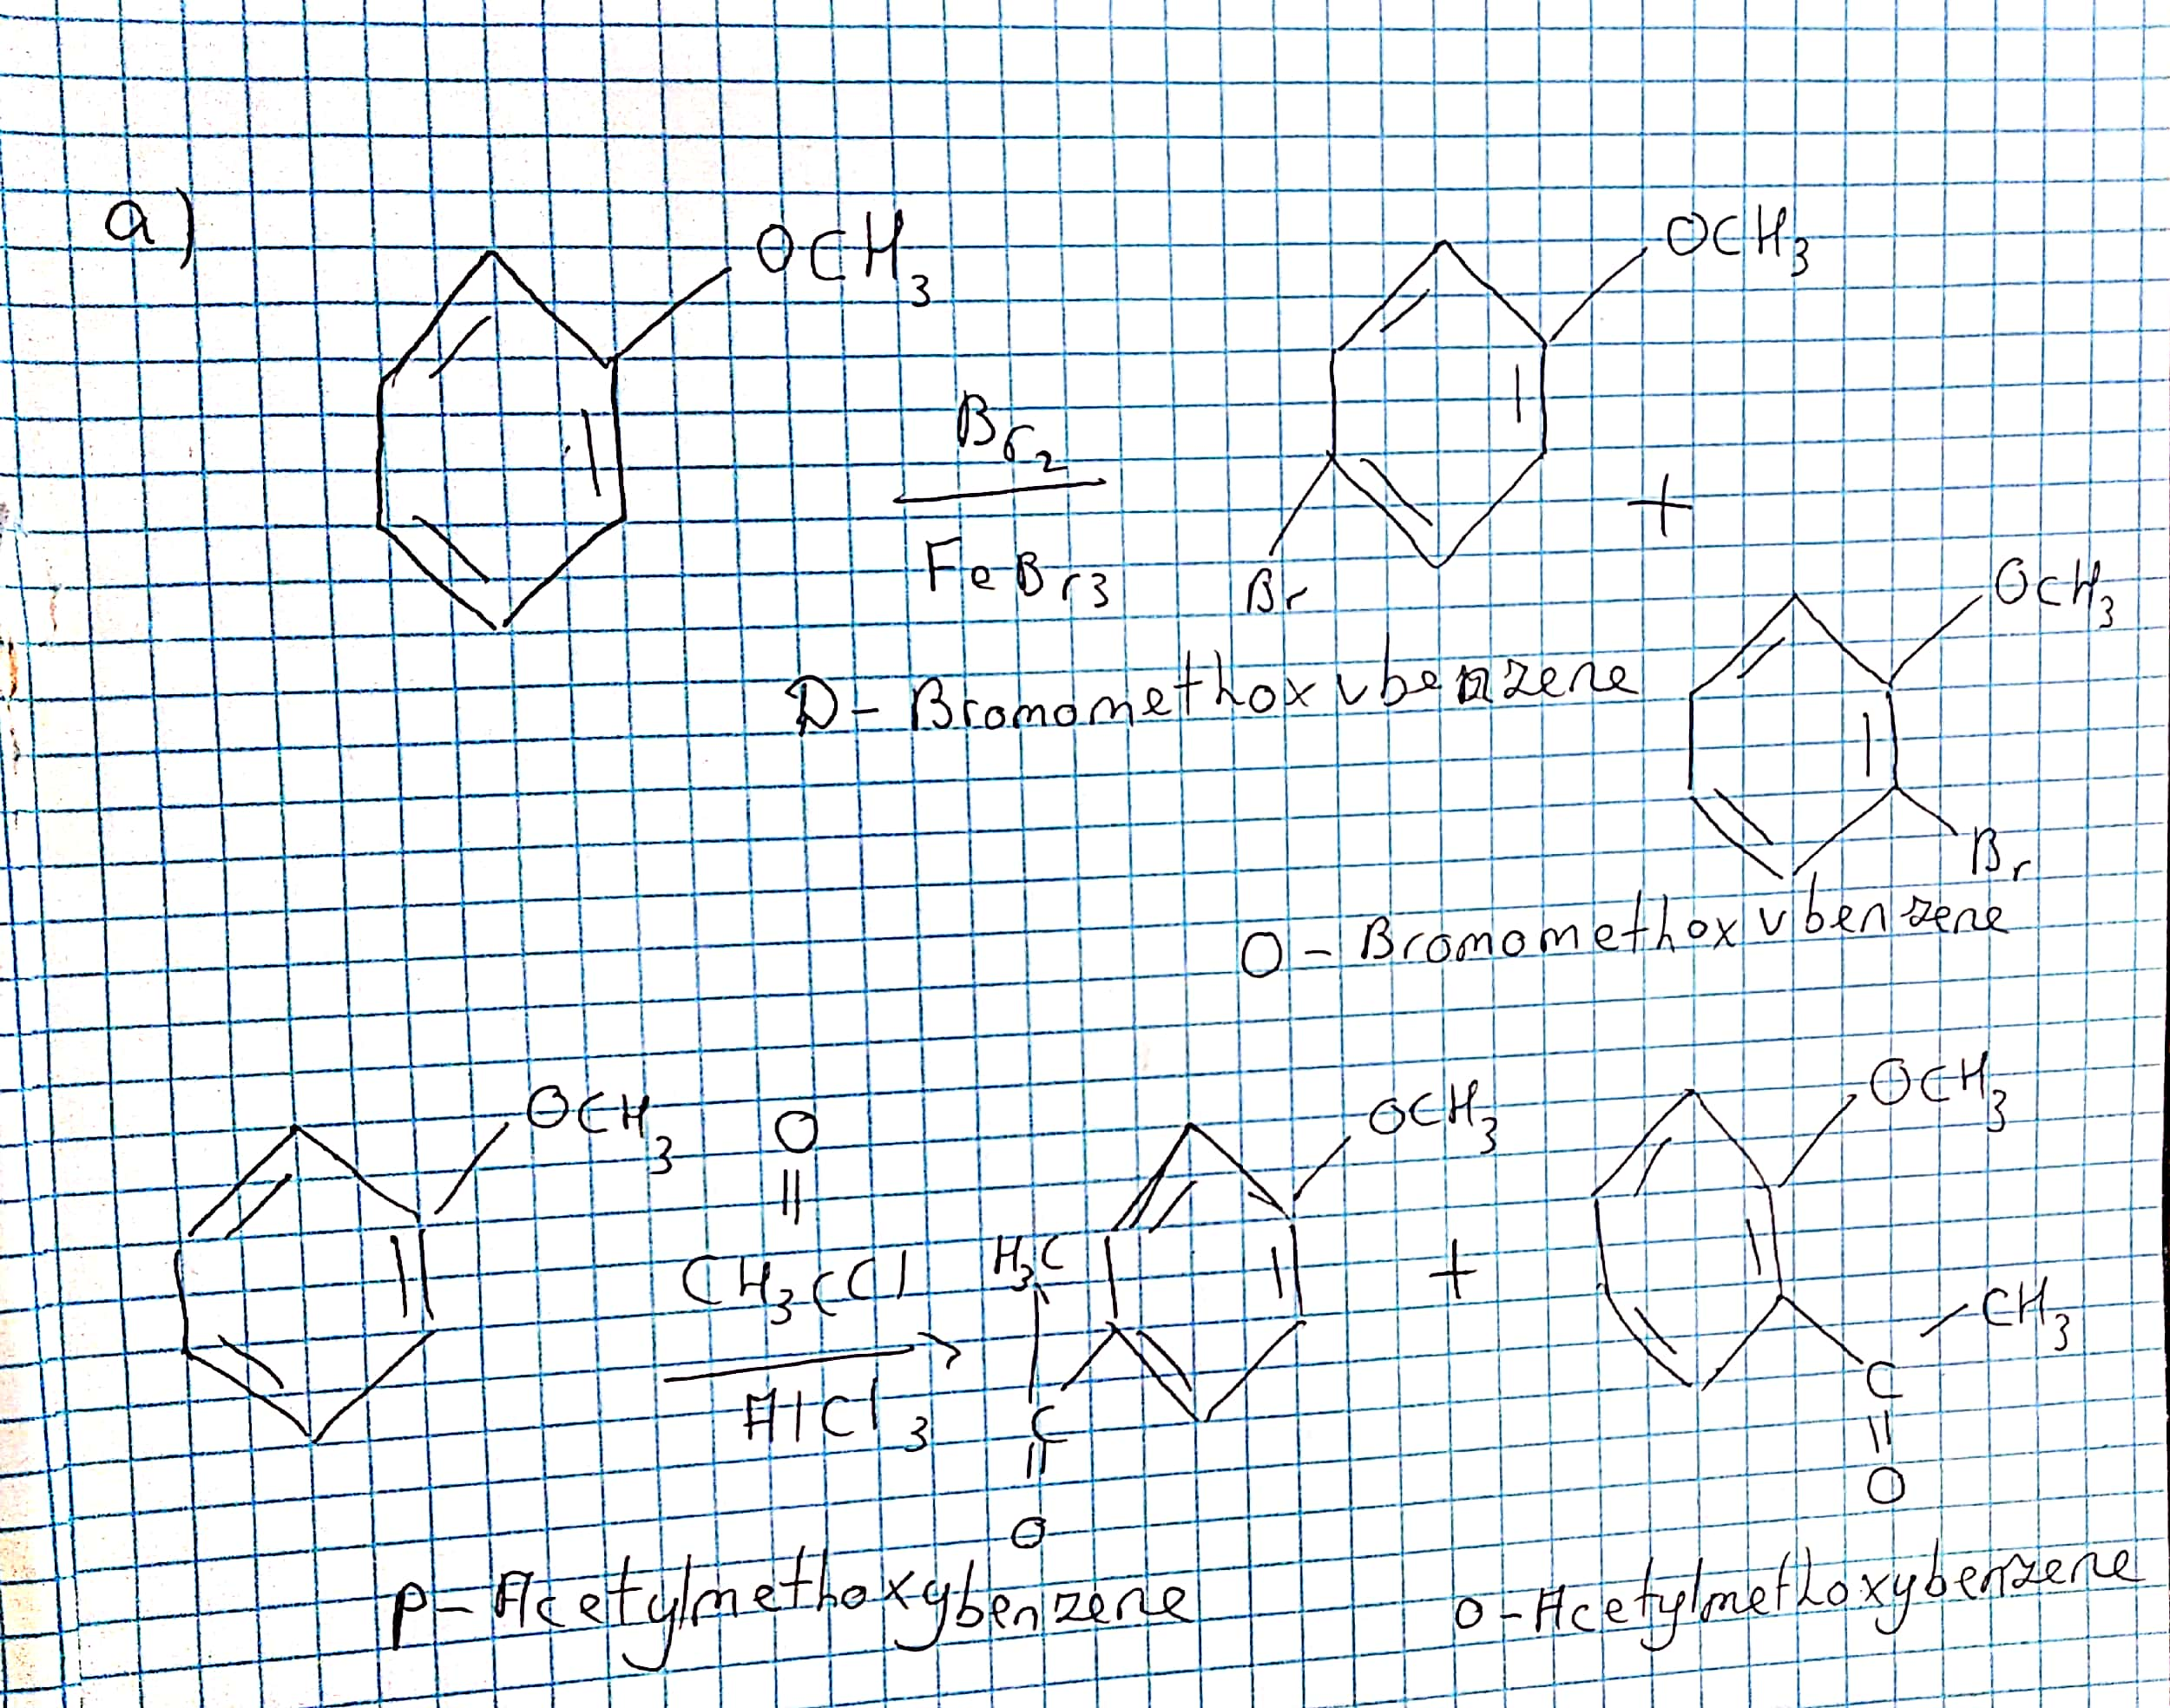 a)
OCH3
Br2
FeBr3
OCH3
Br
+
D- Bromomethoxvbenzene
OCH3
Br
O - Bromomethoxvbenzene
OCH3
O
CH3CCl
AlCl3
OCH3
H3C
C
O
+
OCH3
CH3
C
O
p- Acetylmethoxybenzene
o-Acetylmethoxybenzene